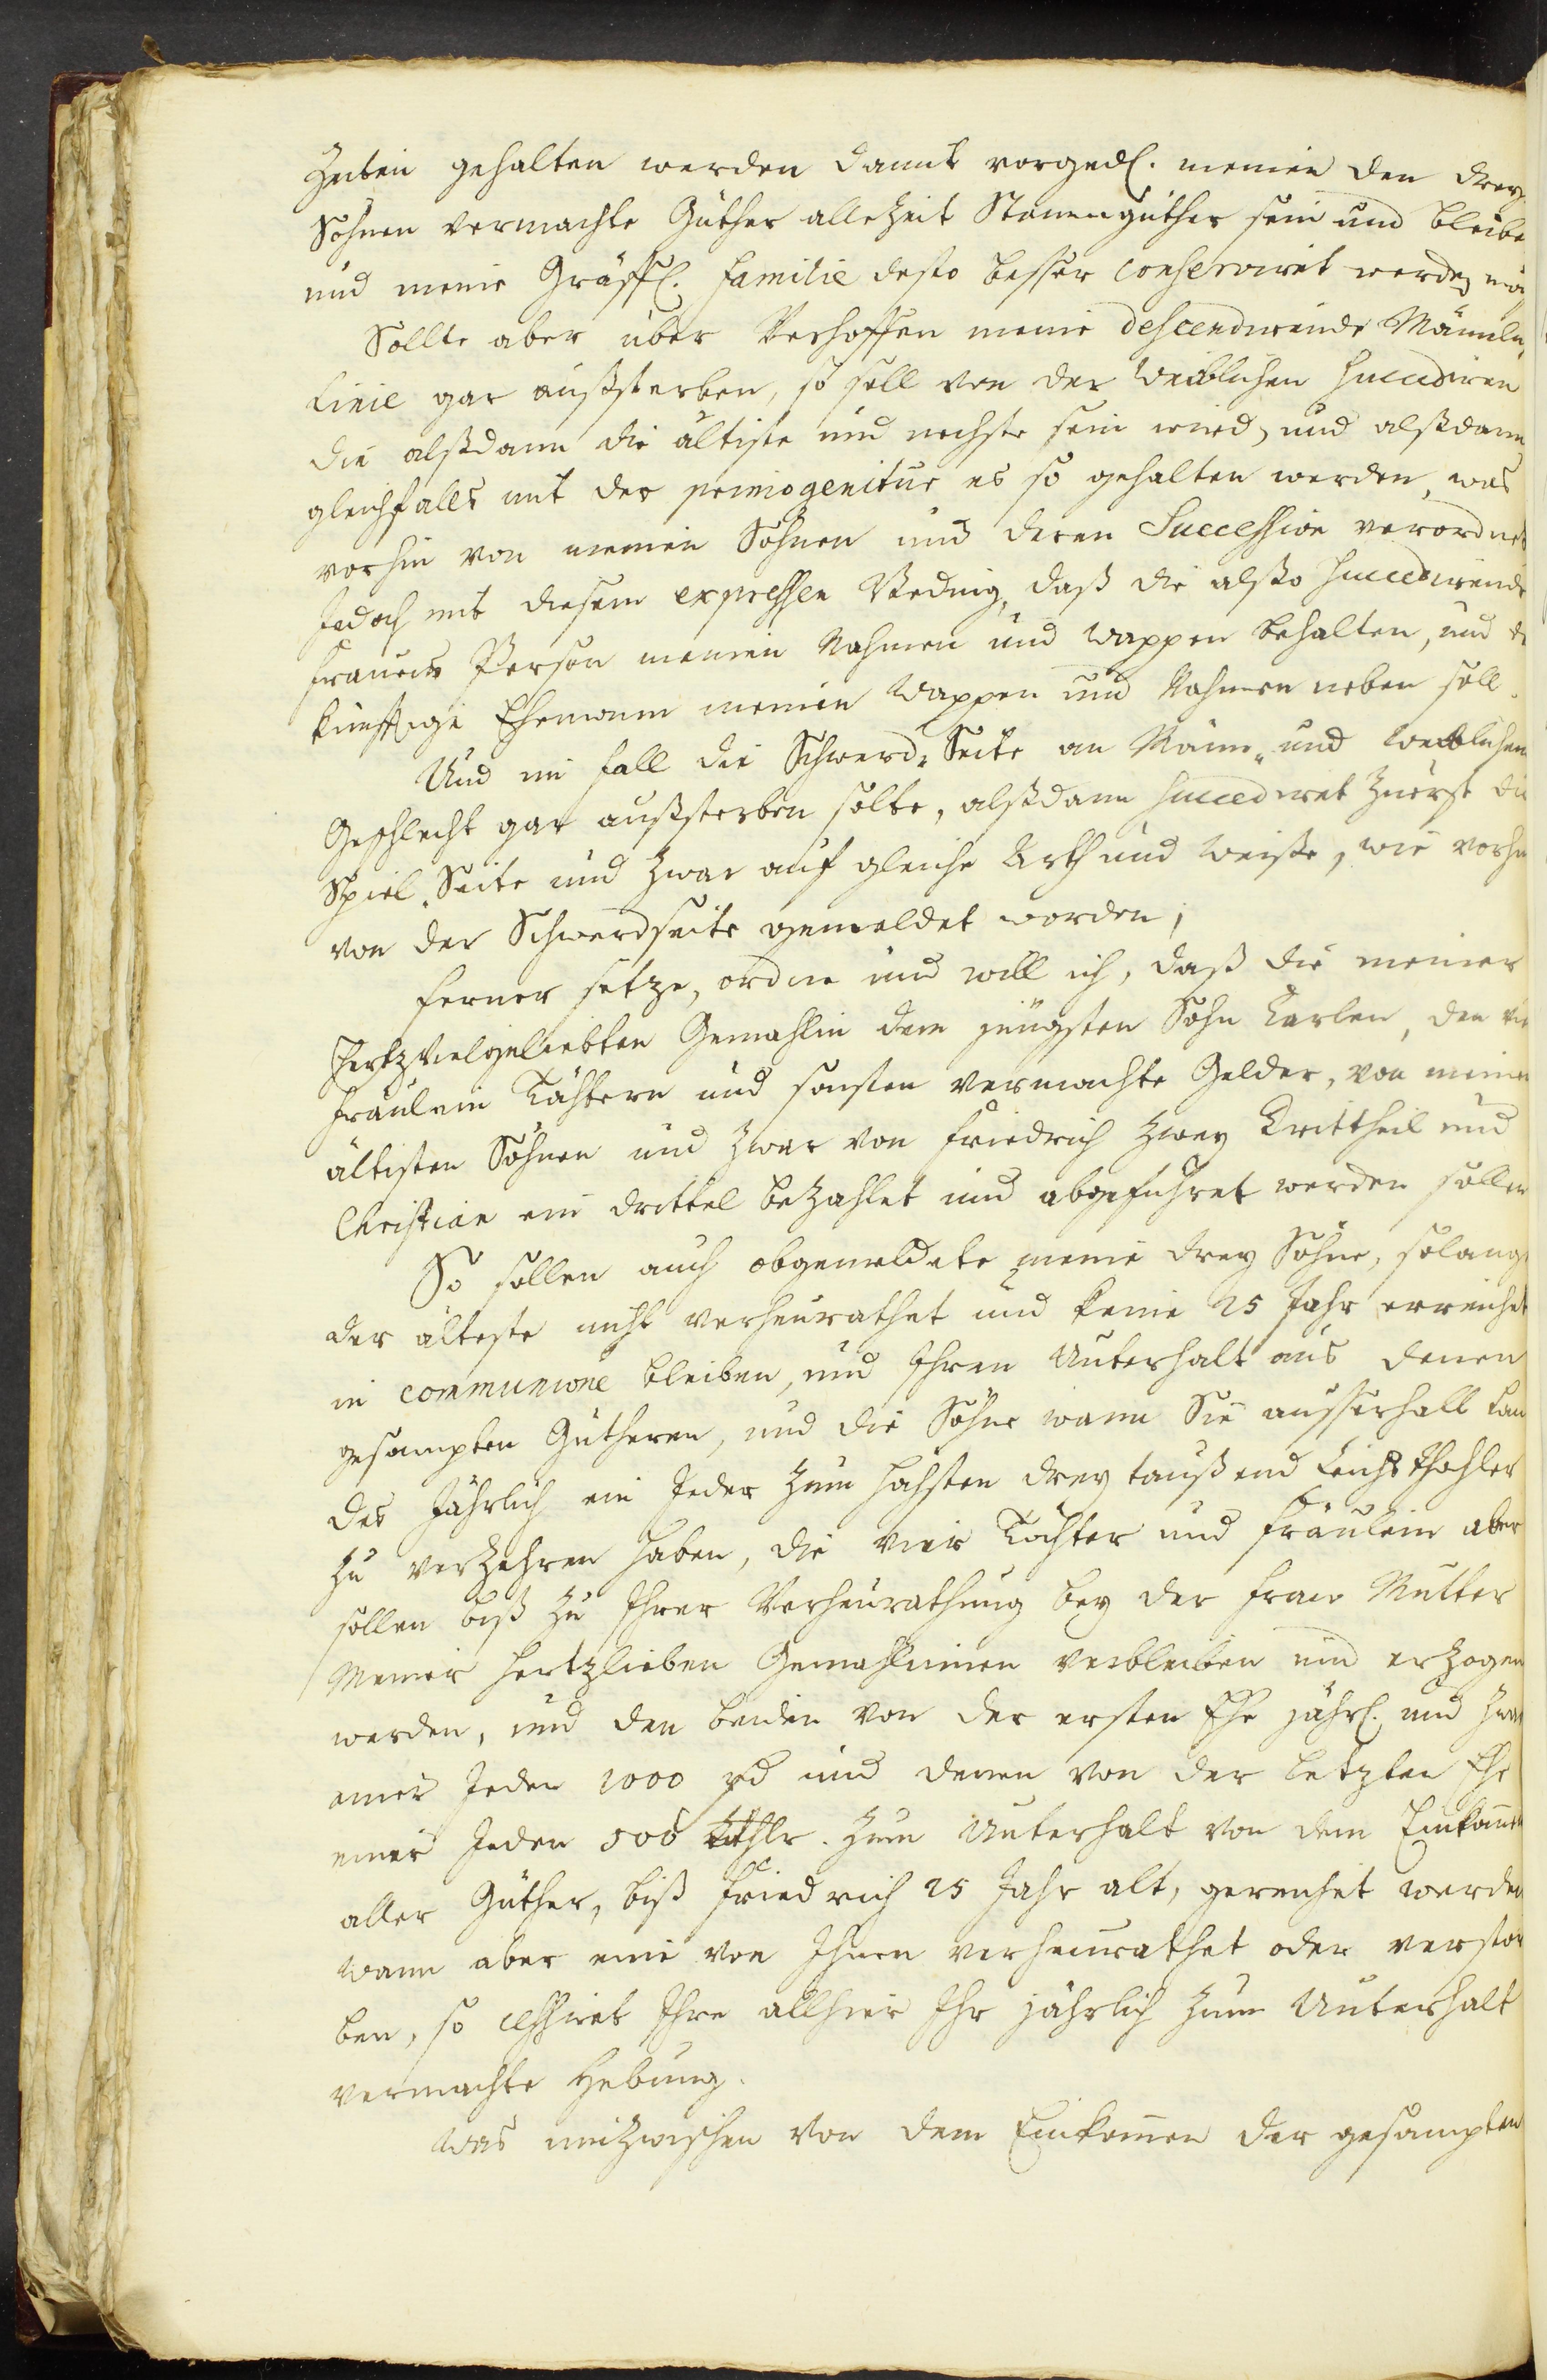 Zeiten gehalten werden damit vorgedl. meinen den drey
Söhnen vermachte Güther allezeit Stamgüther sein und bleibe
und meine Gräffl. familie desto besser conserviret werden mö
Sollte aber über Verhoffen meine descendirende Männl.
Linie gar außsterben, so soll von der Weiblichen succediren
die alßdann die ältiste und nechste sein wird, und alßdann
gleichfalls mit der primogenitur es so gehalten werden, was
vorhin von meinen Söhnen und deren Succession verordnet
Jedoch mit diesem expressen Beding, daß die alßo succedirende
Frauens Person meinen Nahmen und Wappen behalten, und d
künfftige Ehemann meinen Wappen und Nahmen neben soll.
Und im fall die Schwerd-Seite an Mann- und Weiblichen
Geschlecht gar außsterben solte, alßdann succediret zuerst die
Spiel-Seite und zwar auf gleiche Arth und Weiße, wie vorhin
von der Schwerdseite gemeldet worden;
ferner setze, ordne und will ich, daß die meiner
Hertzvielgeliebten Gemahlin dem jüngsten Sohn Carlen, den vie
fräulein Töchtern und sonsten vermachte Gelder, von meinen
ältisten Söhnen und zwar von Friedrich zwey Drittheil und
Christian ein drittel bezahlet und abgeführet werden sollen
So sollen auch obgemeldete meine drey Söhne, solange
der älteste nicht verheurathet und keine 25 Jahr erreichet
in communione bleiben, und Ihren Unterhalt aus denen
gesampten Gütheren, und die Söhne wann Sie ausserhalb Lan
des Jährlich ein Jeder zum höchsten drey taußend Reichsthahler
zu verzehren haben, die vier Töchter und fräulein aber
sollen biß zu Ihrer Verheurathung bey der Frau Mutter
Meiner hertzlieben Gemahlinnen verbleiben und erzogen
werden, und den beiden von der ersten Ehe jährl. und zwar
einer Jeden 1000 und denen von der letzten Ehe
einer Jeden 500 Rthlr. zum Unterhalt von dem Einkom̄en
aller Güther, biß Friedrich 25 Jahr alt, gereichet werden
wann aber eine von Ihnen verheurathet oder verstor
ben, so cessiret Ihre allhier Ihr jährlich zum Unterhalt
vermachte Hebung.
Was immitzwischen von dem Einkom̄en der gesampten